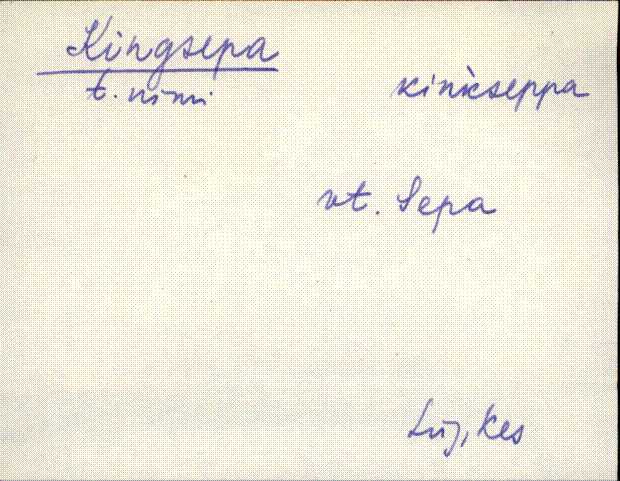 Kingsepa
t. nimi
kinkseppa
vt. Sepa
Lüg, Kes